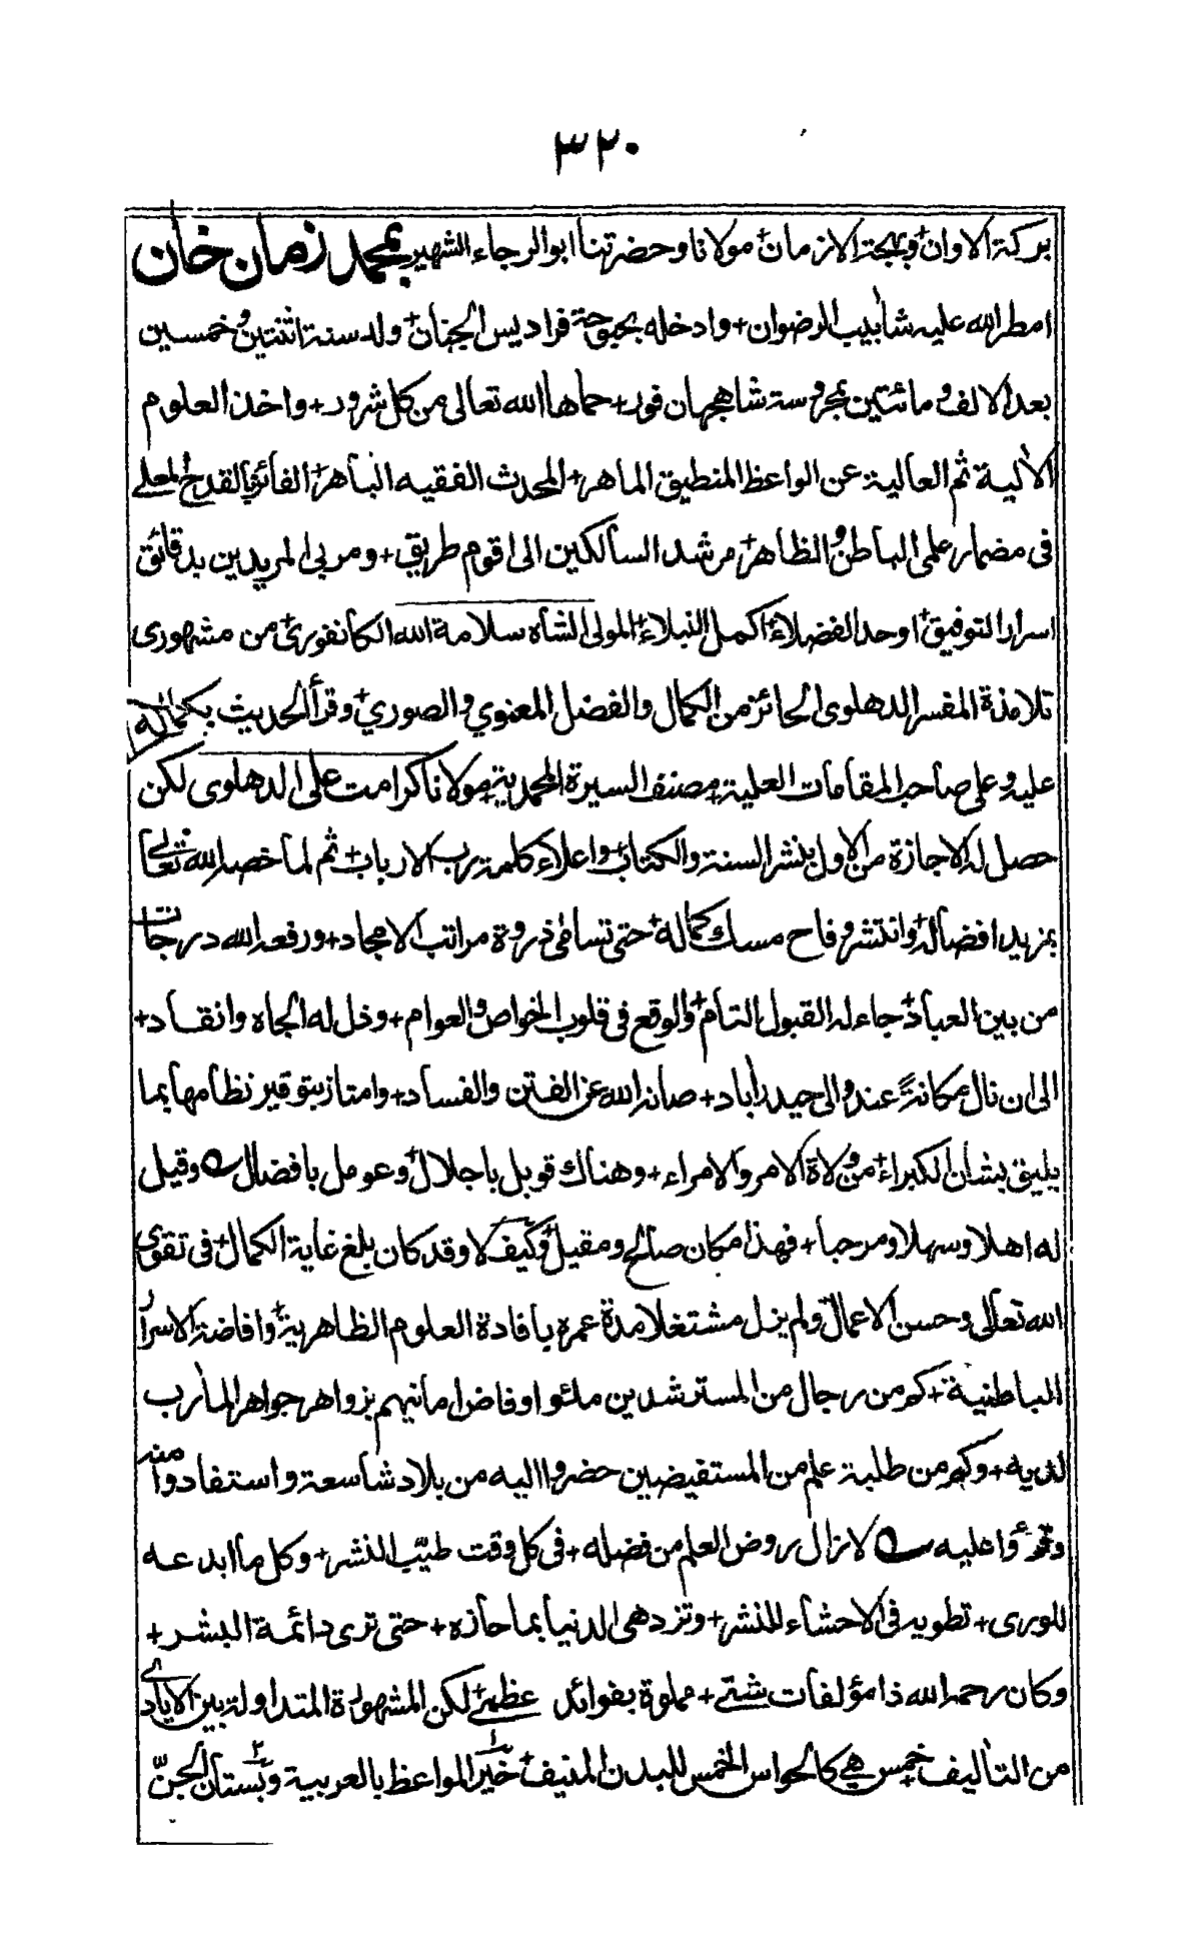 ٣٢٠
بركة الاوان + وبهجة الازمان + مولانا وحضرتنا ابو الرجاء الشهير بمحمد زمان خان
امطر الله عليه شآبيب الرضوان + وادخله بحبوحة فراديس الجنان + ولد سنة اثنتين وخمسين
بعد الالف ومائتين بمحروسة شاهجهان فور + حماها الله تعالى من كل شرور + واخذ العلوم
الآلية ثم العالية عن الواعظ المنطيق الماهر + المحدث الفقيه الباهر + الفائز بالقدح المعلى
فى مضمار علمى الباطن والظاهر + مرشد السالكين الى اقوم طريق + ومربى المريدين بدقائق
اسرار التوفيق + اوحد الفضلاء + اكمل النبلاء + المولى الشاه سلامة الله الكانفورى + من مشهورى
تلامذة المفسر الدهلوى الحائز من الكمال والفضل المعنوي والصوري + وقرأ الحديث بكماله
عليه وعلى صاحب المقامات العلية + مصنف السيرة المحمدية + مولانا كرامت على الدهلوى لكن
حصل له الاجازة من الاول بنشر السنة والكتاب + واعلاء كلمة رب الارباب + ثم لما خصه الله تعالى
بمزيد افضاله + وانتشر وفاح مسك كماله + حتى تسامى ذروة مراتب الامجاد + ورفعه الله درجات
من بين العباد + جاء له القبول التام + والوقع فى قلوب الخواص والعوام + وذل له الجاه وانقاد +
الى ان نال مكانةً عند والى حيدرآباد + صانه الله عن الفتن والفساد + وامتاز بتوقير نظامها بما
يليق بشان الكبراء + من ولاة الامر والامراء + وهناك قوبل باجلال + وعومل بافضال وقيل
له اهلا وسهلا ومرحبا + فهذا مكان صالح ومقيل + وكيف لا وقد كان بلغ غاية الكمال + فى تقوى
الله تعالى وحسن الاعمال + ولم يزل مشتغلا مدة عمره بافادة العلوم الظاهرية + وافاضة الاسرار
الباطنية + كم من رجال من المسترشدين ملئوا وفاض امانيهم بزواهر جواهر المآرب
لديه + وكم من طلبة علم من المستفيضين حضروا اليه من بلاد شاسعة واستفادوا منه
وقرؤا عليه لا زال روض العلم من فضله + فى كل وقت طيّب النشر + وكل ما ابدعه
للورى + تطويه فى الاحشاء للنشر + وتزدهى الدنيا بما حازه + حتى ترى دائمة البشر +
وكان رحمه الله ذا مؤلفات شتى + مملوة بفوائد عظمى + لكن المشهورة المتداولة بين الايادى
من التآليف خمس هى كالحواس الخمس للبدن المنيف + ١ خير المواعظ بالعربية و ٢ بستان الجنّ